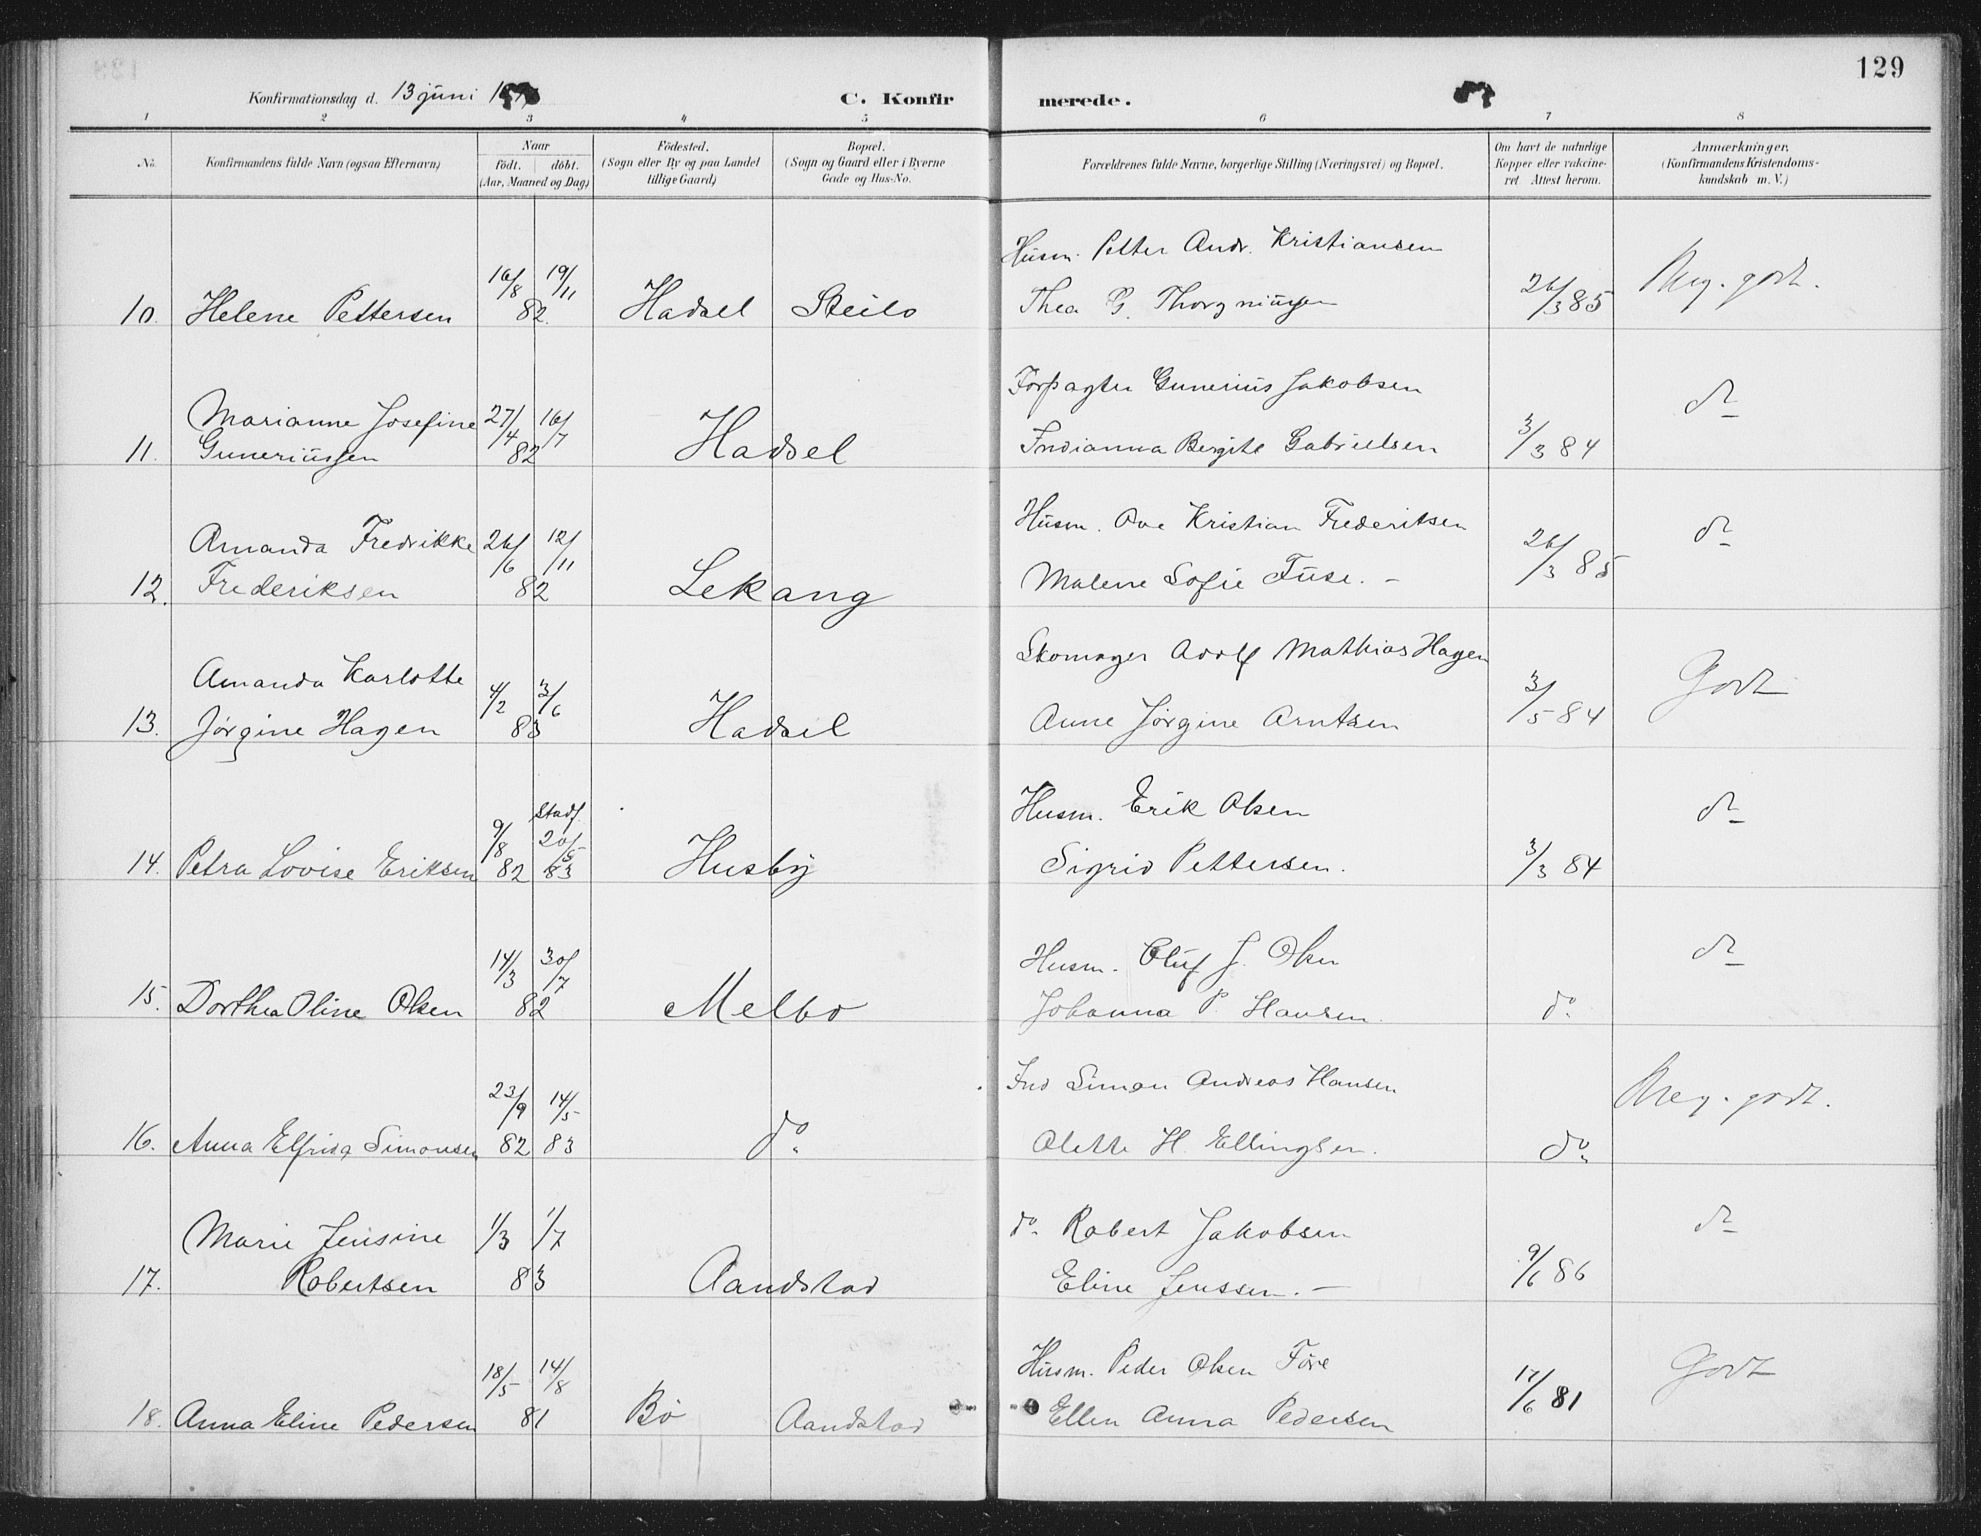 129
Konfirmationsdag d. 13 juni
C. Konfirmerede.
1 2 3 4 5 6 7 8
No.
Konfirmandens fulde Navn (ogsaa Efternavn)
Naar
født. døbt.
(Aar, Maaned og Dag)
Fødested.
(Sogn eller By og paa Landet
tillige Gaard)
Bopæl.
(Sogn og Gaard eller i Byerne
Gade og Hus-No.
Forældrenes fulde Navne, borgerlige Stilling (Næringsvei) og Bopæl.
Om havt de naturlige
Kopper eller vakcine-
ret. Attest herom.
Anmærkninger.
(Konfirmandens Kristendoms-
kundskab m. V.)
Husm. Petter Andr. Kristiansen
16/8 19/11
10. Helene Pettersen 82 Hadsel Steilo Thea G. 26/3 85 Meg. godt.
Forpagter Gunerius Jakobsen do
Marianne Josefine 27/4 16/7
11. Guneriussen 82 Hadsel Indianna Bergite Gabrielsen 3/3 84
Husm. Ove Kristian Frederiksen do
Amanda Fredrikke 26/6 12/11
12. Frederiksen 82 Lekang Malene Sofie Fuse. - 26/3 85
Skomager Adolf Mathias Hagen
Amanda Karlotte 4/2 3/6 Godt
13. Jørgine Hagen 83 Hadsel Anne Jørgine Arntsen 3/5 84
Husm. Erik Olsen do
9/8 Stadf. 20/5
14. Petra Lovise Eriksen 82 83 Husby Sigrid Pettersen. 3/3 84
Husm. Oluf J. Olsen do
14/3 30/7
15. Dorthea Oline Olsen 82 Melbo Johanna P. Hansen. do
Ind Simon Andreas Hansen
23/9 14/5 Meg. godt.
16. Anna Elfrida Simonsen 82 83 do. Olette H. Ellingsen. do.
do. Robert Jakobsen do
Marie Jensine 1/3 1/7
17. Robertsen 83 Aandstad Eline Jenssen. - 9/6 86
Husm. Peder Olsen Føre Godt
18/5 14/8
18. Anna Eline Pedersen 81 Bø Aandstad Ellen Anna Pedersen 17/6 81